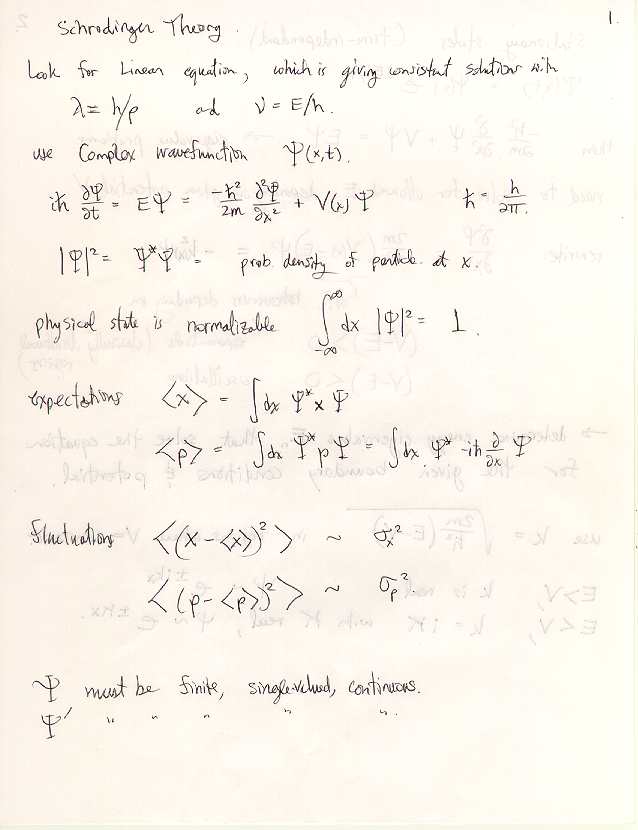 1.
Schrodinger Theory.
Look for Linear equation, which is giving consistent solutions with
λ = h/p and ν = E/h.
use Complex wavefunction Ψ(x,t).
iħ ∂Ψ/∂t = EΨ = -ħ²/2m ∂²Ψ/∂x² + V(x)Ψ ħ = h/2π.
|Ψ|² = Ψ*Ψ = prob. density of particle at x.
physical state is normalizable ∫_{-∞}^{∞} dx |Ψ|² = 1.
expectations <x> = ∫dx Ψ* x Ψ
<p> = ∫dx Ψ* p Ψ = ∫dx Ψ* -iħ ∂/∂x Ψ
fluctuations <(x-<x>)²> ~ σx²
<(p-<p>)²> ~ σp².
Ψ must be finite, single-valued, continuous.
Ψ' " " " " ".